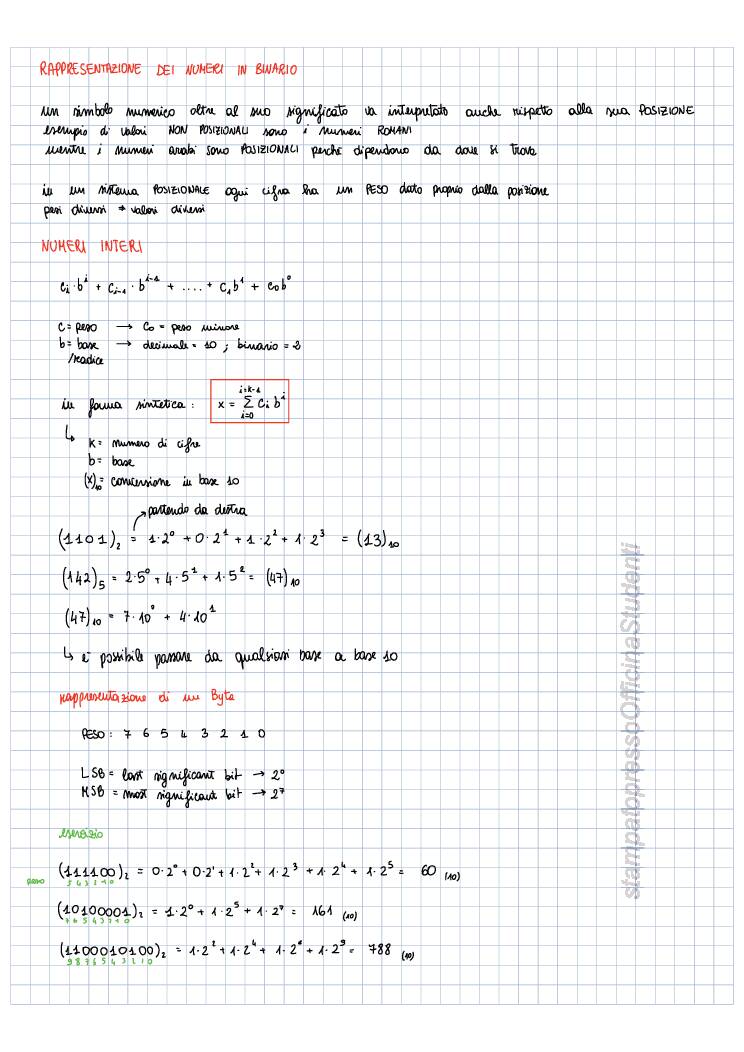 RAPPRESENTAZIONE DEI NUMERI IN BINARIO
un simbolo numerico oltre al suo significato va interpretato anche rispetto alla sua POSIZIONE
esempio di valori NON POSIZIONALI sono i numeri ROMANI
mentre i numeri arabi sono POSIZIONALI perché dipendono da dove si trova
in un sistema POSIZIONALE ogni cifra ha un PESO dato proprio dalla posizione
pesi diversi → valori diversi
NUMERI INTERI
cᵢ·bⁱ + cᵢ₋₁·bⁱ⁻¹ + .... + c₁b¹ + c₀b⁰
c = peso → C₀ = peso minore
b = base → decimale = 10 ; binario = 2
/radice
in forma sintetica : x = Σ cᵢ bⁱ i=k-1 i=0
↳ k = numero di cifre
b = base
(x)₁₀ = conversione in base 10
partendo da destra
(1101)₂ = 1·2⁰ + 0·2¹ + 1·2² + 1·2³ = (13)₁₀
(142)₅ = 2·5⁰ + 4·5¹ + 1·5² = (47)₁₀
(47)₁₀ = 7·10⁰ + 4·10¹
↳ e' possibile passare da qualsiasi base a base 10
rappresentazione di un Byte
PESO : 7 6 5 4 3 2 1 0
LSB = last significant bit → 2⁰
MSB = most significant bit → 2⁷
esercizio
(111100)₂ = 0·2⁰ + 0·2¹ + 1·2² + 1·2³ + 1·2⁴ + 1·2⁵ = 60 (10)
peso 5 4 3 2 1 0
(10100001)₂ = 1·2⁰ + 1·2⁵ + 1·2⁷ = 161 (10)
7 6 5 4 3 2 1 0
(1100010100)₂ = 1·2² + 1·2⁴ + 1·2⁸ + 1·2⁹ = 788 (10)
9 8 7 6 5 4 3 2 1 0
stampatopressoOfficinaStudenti